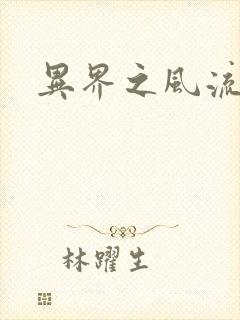 異界之風流
林躍生